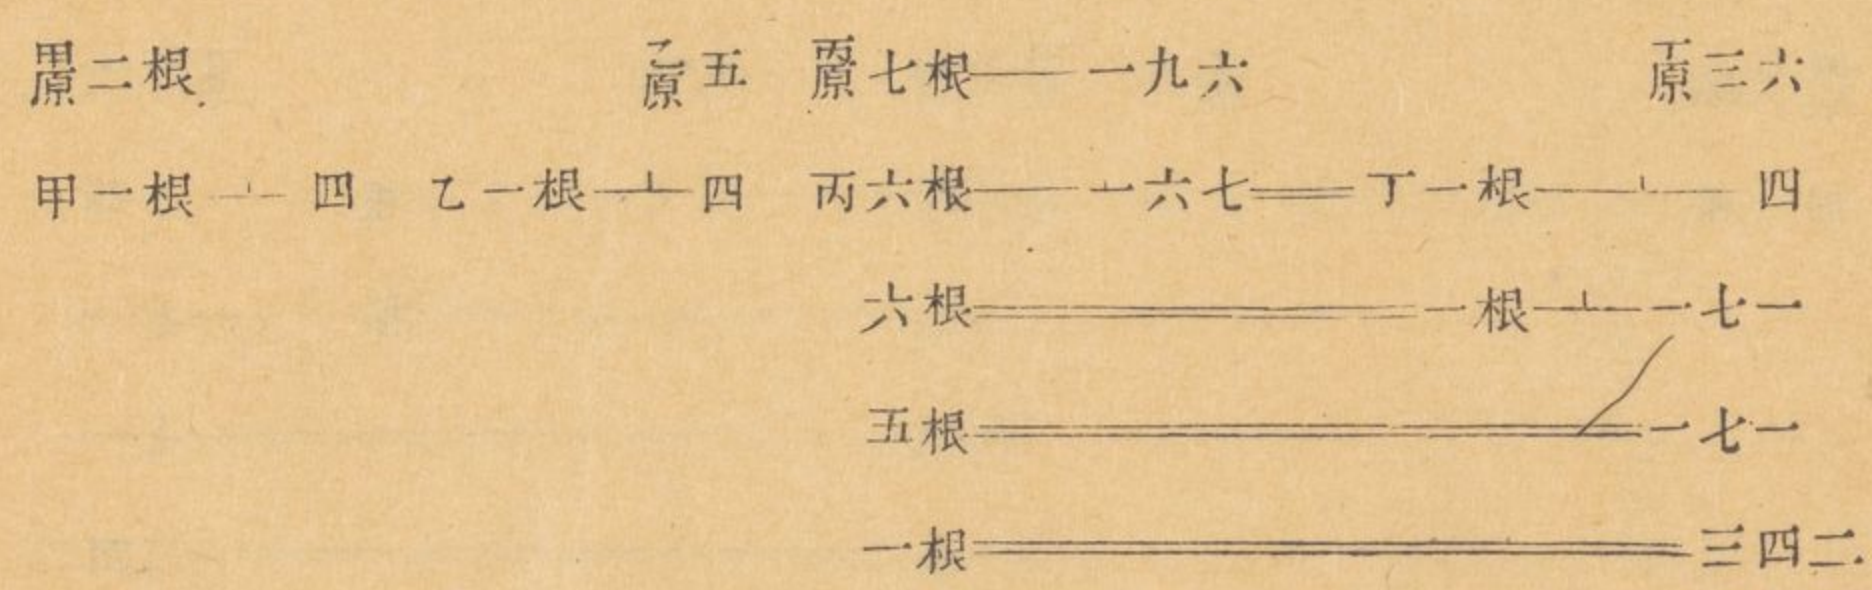 甲原二根 乙原五 丙原七根—一九六 丁原三六
甲一根⊥四 乙一根⊥四 丙六根—一六七=丁一根⊥四
六根=一根⊥一七一
五根=一七一
一根=三四二